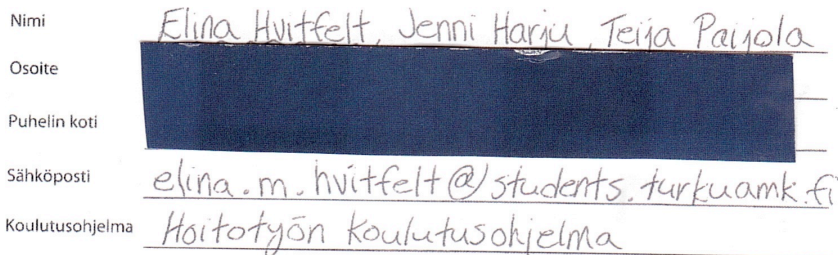 Nimi Elina Hvitfelt, Jenni Harju, Teija Paijola
Osoite
Puhelin koti
Sähköposti elina.m.hvitfelt@students.turkuamk.fi
Koulutusohjelma Hoitotyön koulutusohjelma